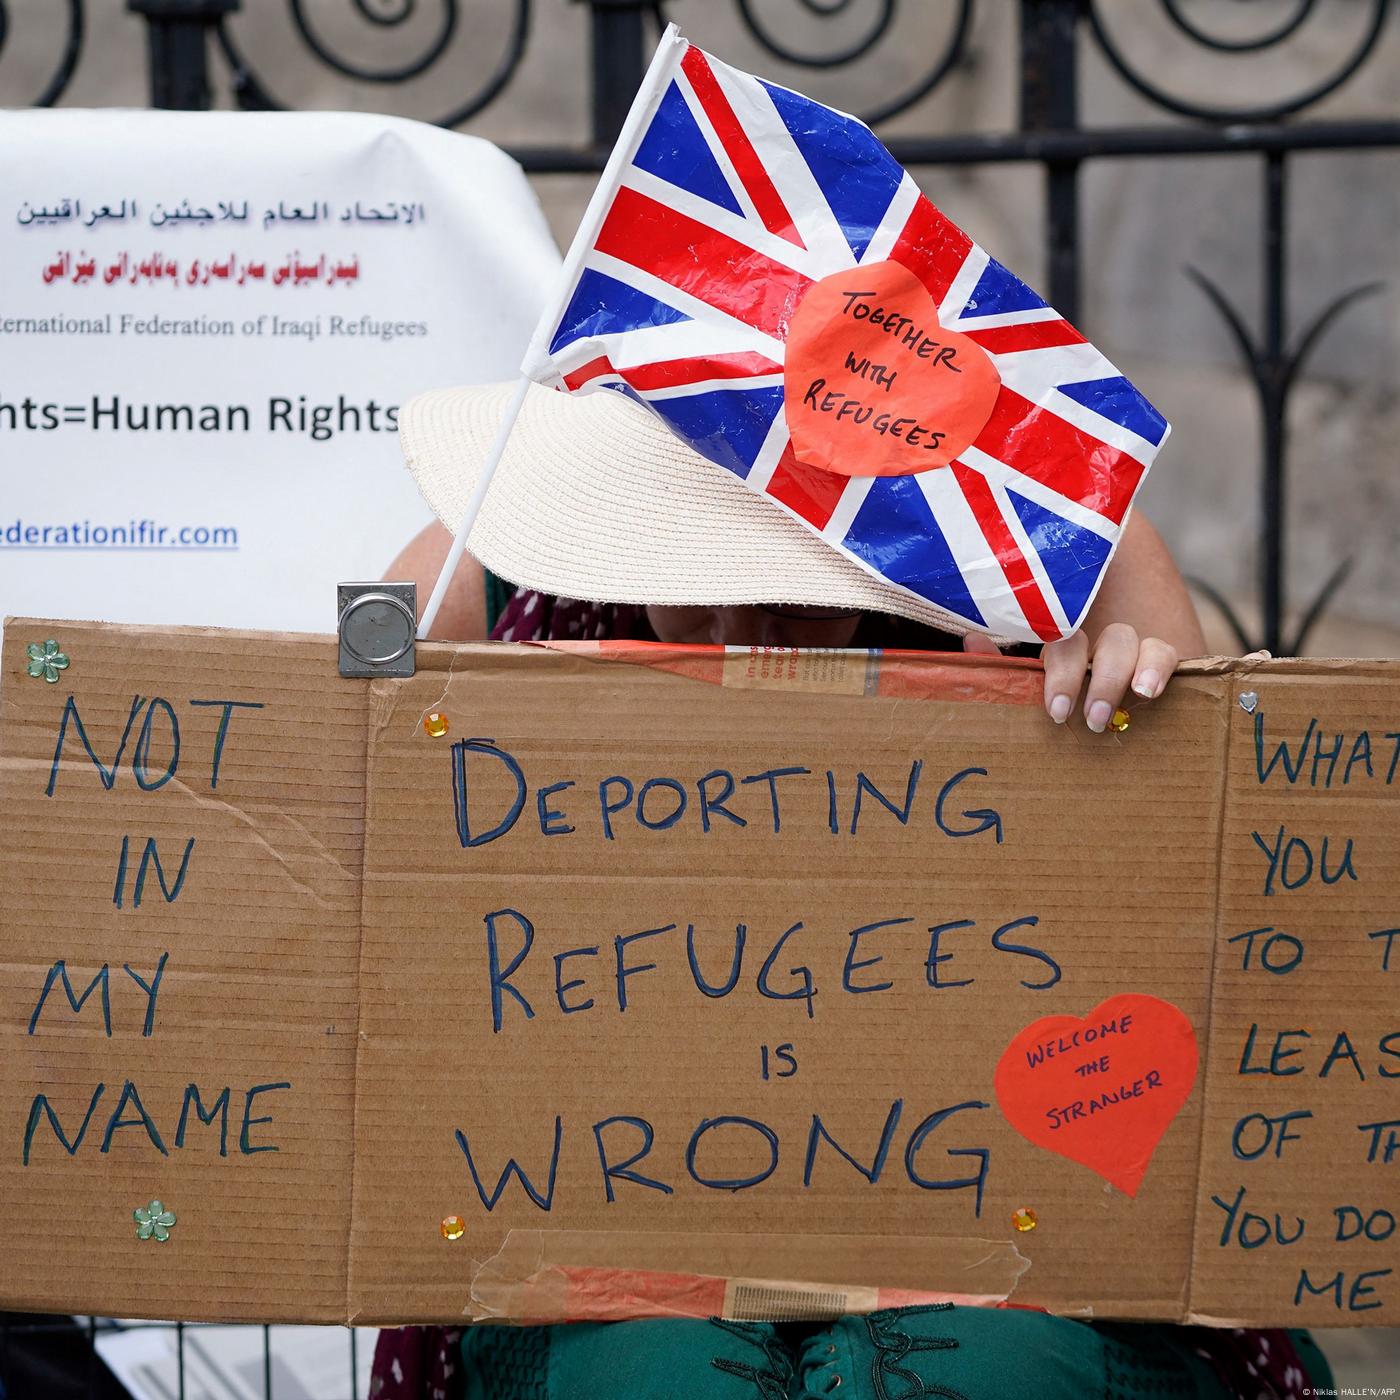 الاتحاد العام للاجئين العراقيين
فیدراسیۆنی سەراسەری پەنابەرانی عێراقی
ternational Federation of Iraqi Refugees
hts=Human Rights
ederationifir.com
TOGETHER
WITH
REFUGEES
NOT
IN
MY
NAME
DEPORTING
REFUGEES
IS
WRONG
WELCOME
THE
STRANGER
WHAT
YOU
TO T
LEAS
OF TH
YOU DO
ME
© Niklas HALLE'N/AFP